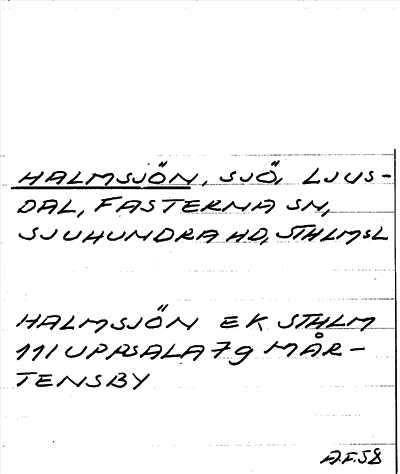 HALMSJÖN, SJÖ, LJUS-
DAL, FASTERNA SN,
SJUHUNDRA HD, STHLMSL
HALMSJÖN EK STHLM
111 UPPSALA 7 9 MÅR-
TENSBY
A.F.58